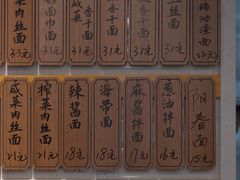 菜肉丝面
33元
面巾面
31元
咸菜香干面
31元
香干面
31元
丝面
31元
面
22元
咸菜肉丝面
21元
榨菜肉丝面
21元
辣酱面
18元
海带面
18元
麻酱拌面
17元
葱油拌面
16元
阳春面
15元